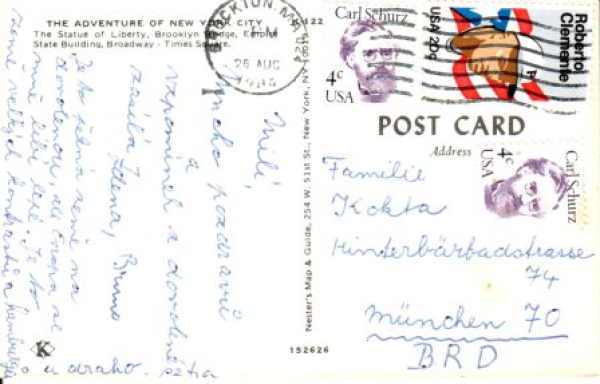 THE ADVENTURE OF NEW YORK CITY
The Statue of Liberty, Brooklyn Bridge, Empire
State Building, Broadway - Times Square.
K-122
26 AUG
Carl Schurz
4c
USA
Roberto
Clemente
USA 20c
Carl Schurz
4c
USA
POST CARD
Address
Familie
Kokta
Hinterbärbadstrasse
74
München 70
BRD
Milí,
mnoho pozdravů
a
vzpomínek z dovolené
zasílá Zdena, Bruno
Je to země na
dovolenou, ale
mně líbí Je to
země velkých kontrastů a
a draho.
Nester's Map & Guide, 254 W. 51st St., New York, NY 10019
K
152626